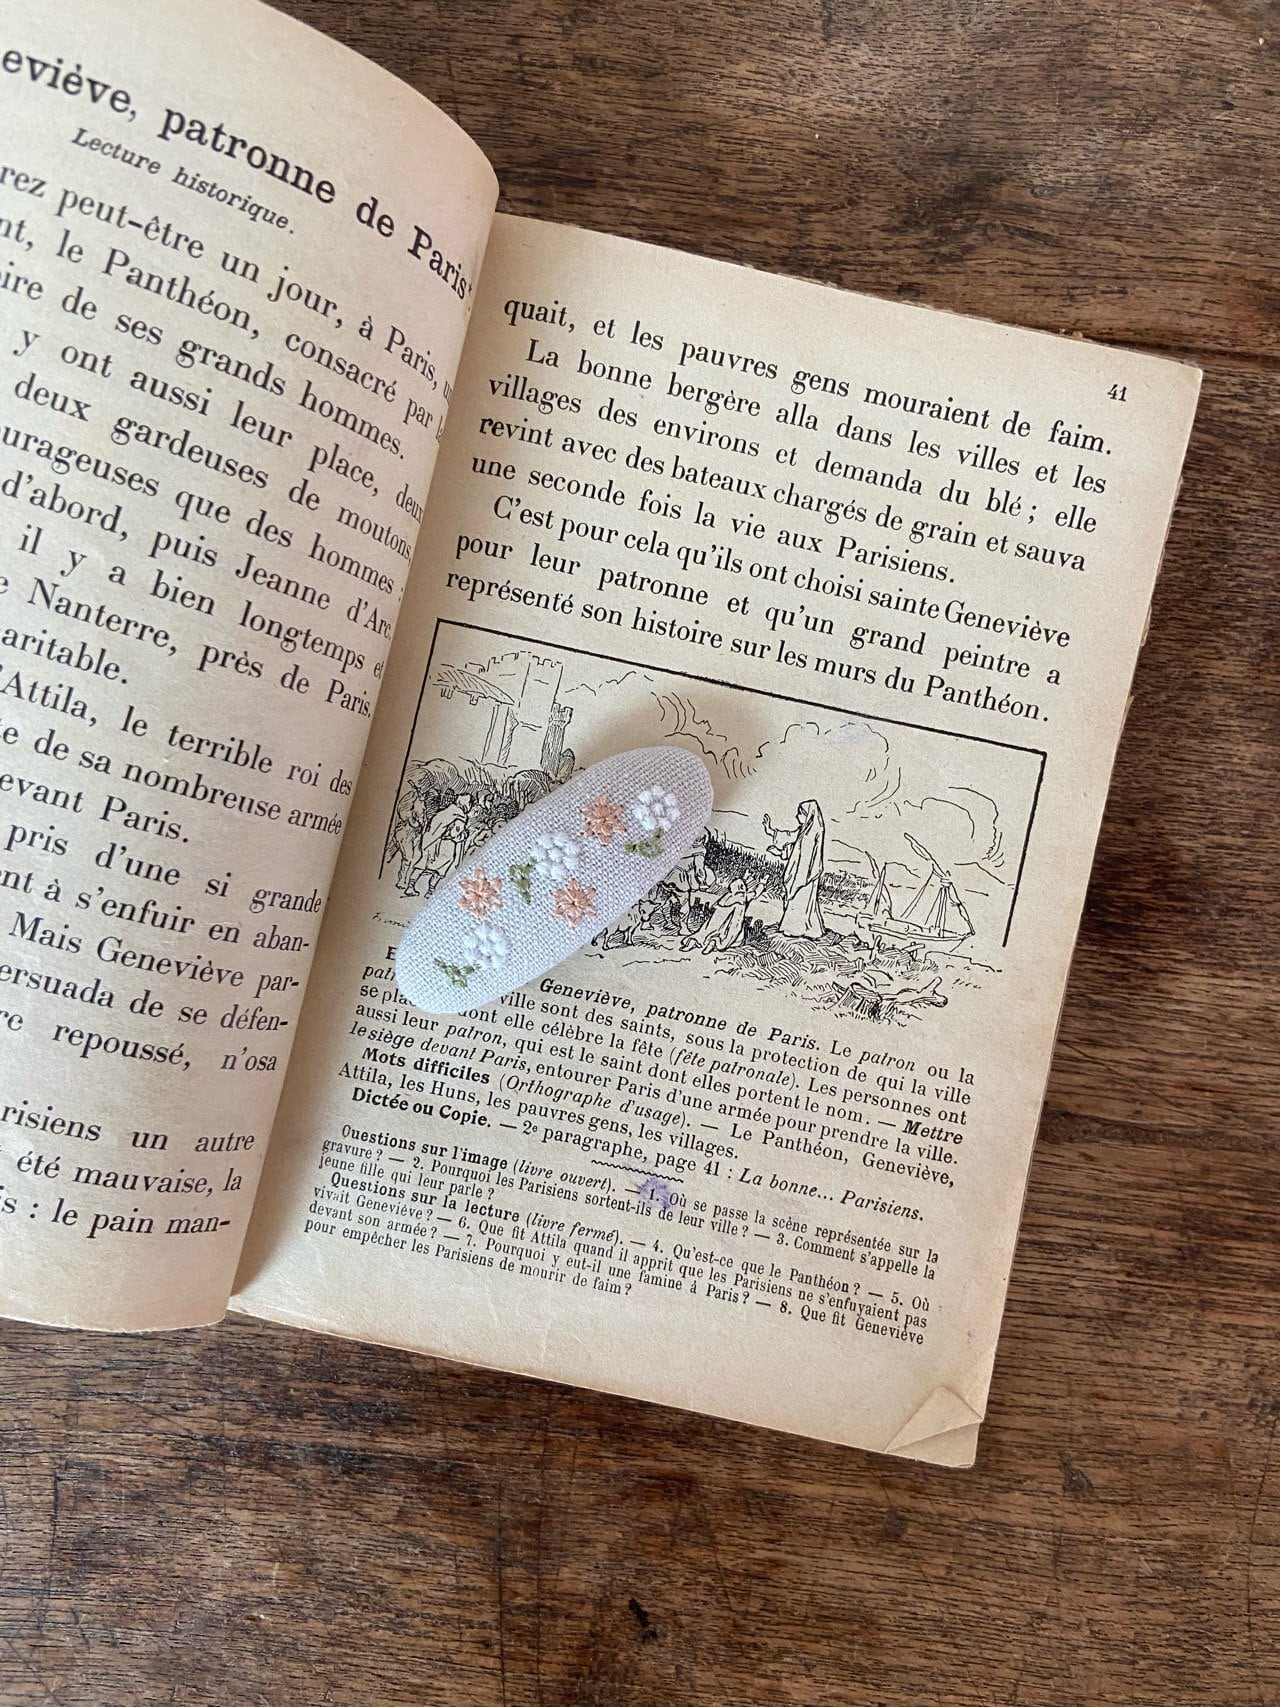 eviève, patronne de Paris*.
Lecture historique.
rez peut-être un jour, à Paris, u
nt, le Panthéon, consacré par l
ire de ses grands hommes.
y ont aussi leur place, deux
deux gardeuses de moutons,
urageuses que des hommes :
d'abord, puis Jeanne d'Arc.
il y a bien longtemps et
e Nanterre, près de Paris.
aritable.
'Attila, le terrible roi des
te de sa nombreuse armée
evant Paris.
pris d'une si grande
nt à s'enfuir en aban-
Mais Geneviève par-
ersuada de se défen-
re repoussé, n'osa
risiens un autre
été mauvaise, la
is : le pain man-
41
quait, et les pauvres gens mouraient de faim.
La bonne bergère alla dans les villes et les
villages des environs et demanda du blé ; elle
revint avec des bateaux chargés de grain et sauva
une seconde fois la vie aux Parisiens.
C'est pour cela qu'ils ont choisi sainte Geneviève
pour leur patronne et qu'un grand peintre a
représenté son histoire sur les murs du Panthéon.
E
Geneviève, patronne de Paris. Le patron ou la
pat
ville sont des saints, sous la protection de qui la ville
se pla
dont elle célèbre la fête (fête patronale). Les personnes ont
aussi leur patron, qui est le saint dont elles portent le nom. — Mettre
le siège devant Paris, entourer Paris d'une armée pour prendre la ville.
Mots difficiles (Orthographe d'usage). — Le Panthéon, Geneviève,
Attila, les Huns, les pauvres gens, les villages.
Dictée ou Copie. — 2e paragraphe, page 41 : La bonne... Parisiens.
Questions sur l'image (livre ouvert). — 1. Où se passe la scène représentée sur la
gravure ? — 2. Pourquoi les Parisiens sortent-ils de leur ville ? — 3. Comment s'appelle la
jeune fille qui leur parle ?
Questions sur la lecture (livre fermé). — 4. Qu'est-ce que le Panthéon ? — 5. Où
vivait Geneviève ? — 6. Que fit Attila quand il apprit que les Parisiens ne s'enfuyaient pas
devant son armée ? — 7. Pourquoi y eut-il une famine à Paris ? — 8. Que fit Geneviève
pour empêcher les Parisiens de mourir de faim ?